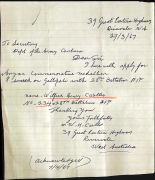 39 Great Eastern Highway
Rivervale W.A.
29/3/67
To Secretary
Dept of the Army Canberra
Dear Sir,
I here will apply for
Anzac Commemorative Medallion
I served on Gallipoli with 28th Battalion AIF
name. Henry
No. 28th Battalion AIF
Thanking You
Yours Faithfully
W. H.
39 Great Eastern Highway
Rivervale
West Australia
Acknowledged